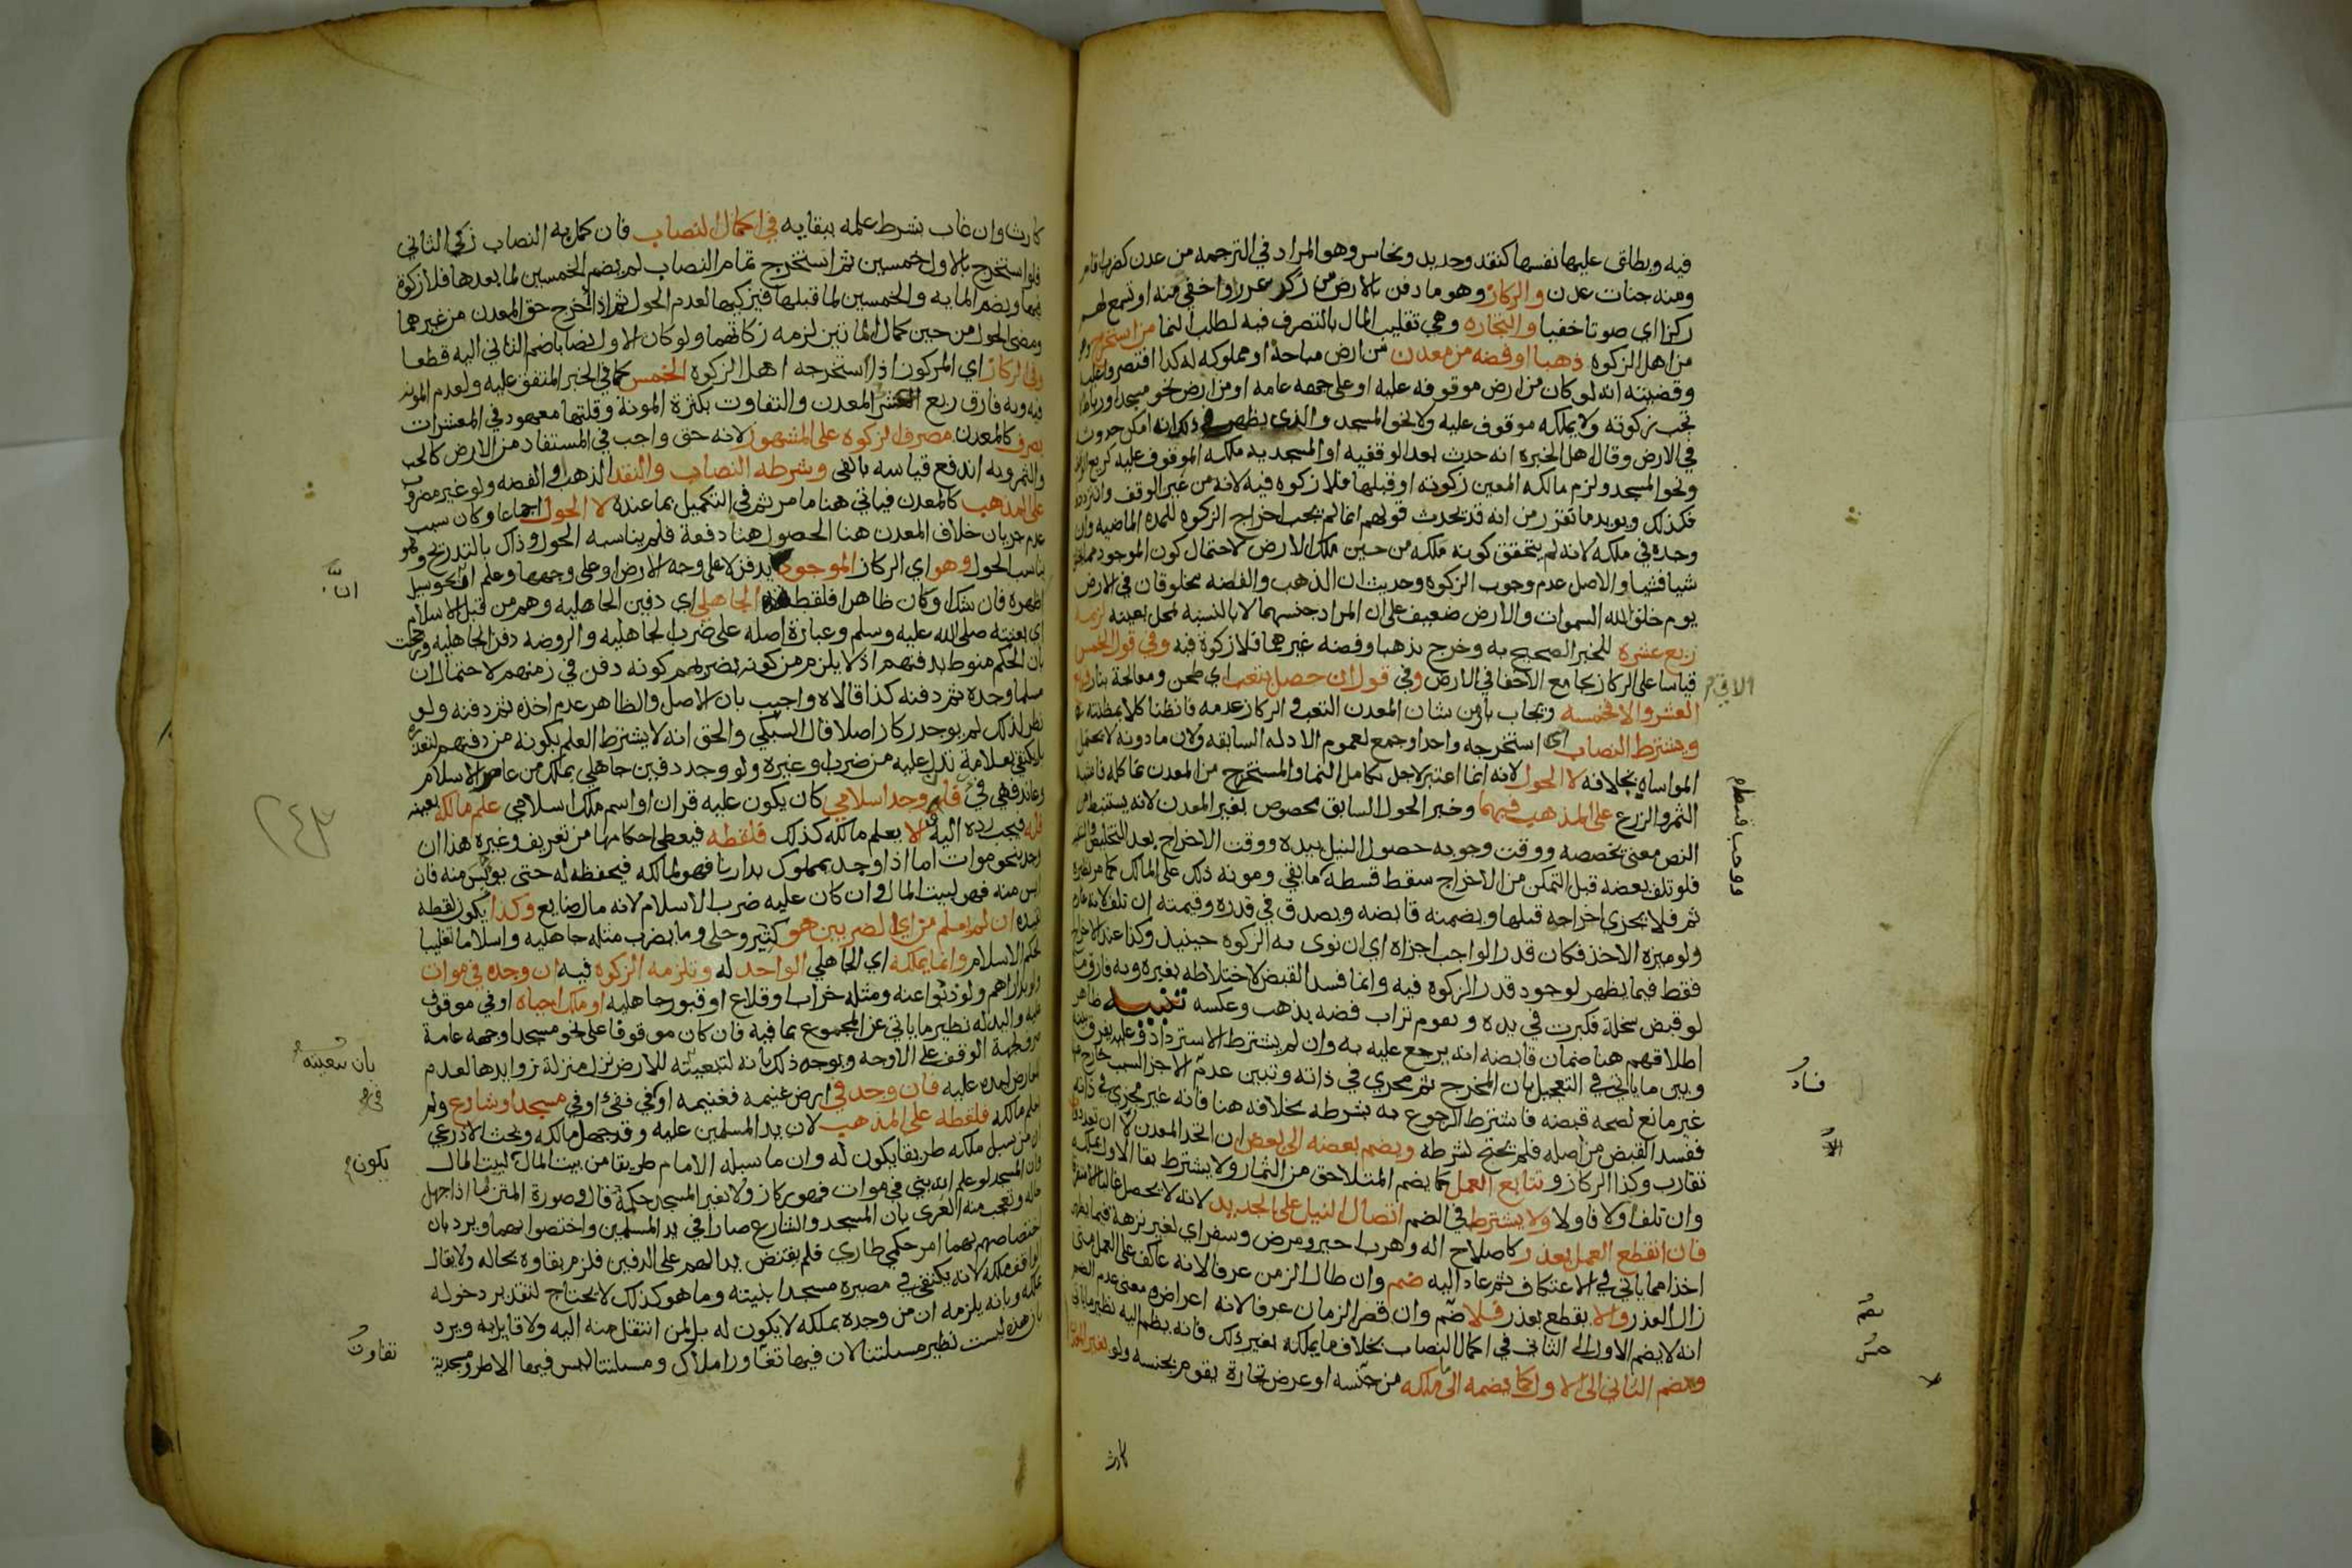 فيه ويطلق عليها نفسها كنقد وحديد ونحاس وهو المراد في الترجمه من عدن كضرب اقام
ومنه جنات عدن والركاز وهو ما دفن بالارض من ركز غرز او اخفي منه او تسمع لهم
ركزا اي صوتا خفيا والتجاره وهي تقليب المال بالتصرف فيه لطلب النما من استخرج
من اهل الزكوه ذهبا او فضه من معدن من ارض مباحة او مملوكه له كذا اقتصروا عليه
وقضيته انه لو كان من ارض موقوفه عليه او على جهه عامه او من ارض نحو مسجد او رباط
تجب زكوته ولا يملكه موقوف عليه ولا نحو المسجد والذي يظهر في ذلك انه امكن حدوث
في الارض وقال اهل الخبره انه حدث بعد الوقفيه او المسجديه ملكه الموقوف عليه كريع
ونحو المسجد ولزم مالكه المعين زكوته او قبلها فلا زكوه فيه لانه من عين الوقف وان تردد
فكذلك ويويد ما تقرر من انه قد يحدث قولهم انما لم يجب اخراج الزكوه للمده الماضيه وان
وجده في ملكه لانه لم يتحقق كونه ملكه من حين ملك الارض لاحتمال كون الموجود مما
شيا فشيا والاصل عدم وجوب الزكوه وحديث ان الذهب والفضه مخلوقان في الارض
يوم خلق الله السموات والارض ضعيف على ان المراد جنسهما لا بالنسبة لمحل بعينه لزمه
ربع عشره للخبر الصحيح به وخرج بذهبا وفضه غيرهما فلا زكوة فيه وفي قول الخمس
قياسا على الركاز بجامع الاخفا في الارض وفي قول ان حصل بتعب اي طحن ومعالجة بنار
العشر والا فخمسه ويجاب بان من شان المعدن التعب والركاز عدمه فانظنا كلا بمظنته
ويشترط النصاب استخرجه واحد او جمع لعموم الادله السابقه ولان ما دونه لا يحتمل
المواساه بخلافه لا الحول لانه انما اعتبر لاجل تكامل النما والمستخرج من المعدن نما كله فاشبه
الثمر والزرع على المذهب فيهما وخبر الحول السابق مخصوص بغير المعدن لانه يستنبط من
النص معنى يخصصه ووقت وجوبه حصول النيل بيده ووقت الاخراج بعد التخليص
فلو تلف بعضه قبل التمكن من الاخراج سقط قسطه كما بقي ومونه ذلك على المالك كما مر نظيره
ثم فلا يجزي اخراجه قبلها ويضمنه قابضه ويصدق في قدره وقيمته ان تلف لانه غارم
ولو ميزه الاخذ فكان قدر الواجب اجزاه اي ان نوى به الزكوه حينيذ وكذا عند الاخراج
فقط فيما يظهر لوجود قدر الزكوه فيه وانما فسد القبض لاختلاطه بغيره وبه فارق
لو قبض سخلة فكبرت في يده ويقوم تراب فضه بذهب وعكسه تنبيه ظاهر
اطلاقهم هنا ضمان قابضه انه يرجع عليه به وان لم يشترط الاسترداد وعليه يفرق بينه
وبين ما ياتي في التعجيل بان المخرج ثم مجزي في ذاته وتبين عدم الاجزا لسبب خارج
غير مانع لصحه قبضه فاشترط الرجوع به بشرطه بخلافه هنا فانه غير مجزي في ذاته
ففسد القبض من اصله فلم يحتج لشرطه ويضم بعضه الى بعض ان اتحد المعدن لا ان تعدد
تقارب وكذا الركاز وتتابع العمل كما يضم المتلاحق من الثمار ولا يشترط بقا الاول بملكه
وان تلف اولا فاولا ولا يشترط في الضم اتصال النيل على الجديد لانه لا يحصل غالبا
فان انقطع العمل بعذر كاصلاح اله وهرب اجير ومرض وسفر اي لغير نزهة فيما يظهر
اخذا مما ياتي في الاعتكاف ثم عاد اليه ضم وان طال الزمن عرفا لانه عاكف على العمل متى
زال العذر والا يقطع بعذر فلا ضم وان قصر الزمان عرفا لانه اعراض ومعنى عدم الضم
انه لا يضم الاول الى الثاني في اكمال النصاب بخلاف ما يملكه بغير ذلك فانه يضم اليه نظير ما ياتي
ويضم الثاني الى الاول كما يضمه الى ما ملكه من جنسه او عرض تجارة يقوم بجنسه ولو بغير المعدن
كارث
ووجب قسط ما
فساد
كارث وان غاب بشرط علمه ببقايه في اكمال النصاب فان كمل به النصاب زكي الثاني
فلو استخرج بالاول خمسين ثم استخرج تمام النصاب لم يضم الخمسين لما بعدها فلا زكوة
فيها ويضم المايه والخمسين لما قبلها فيزكيها لعدم الحول ثم اذا اخرج حق المعدن من غيرهما
ومضى الحول من حين كمال المائتين لزمه زكاتهما ولو كان الاول نصابا ضم الثاني اليه قطعا
وفي الركاز اي المركوز اذا استخرجه اهل الزكوة الخمس كما في الخبر المتفق عليه ولعدم المونه
فيه وبه فارق ربع العشر المعدن والتفاوت بكثرة المونة وقلتها معهود في المعشرات
يصرف كالمعدن مصرف الزكوه على المشهور لانه حق واجب في المستفاد من الارض كالحب
والثمر وبه اندفع قياسه بالفى وشرطه النصاب والنقد الذهب والفضه ولو غير مضروب
على المذهب كالمعدن فياتي هنا ما مر ثم في التكميل بما عنده لا الحول اجماعا وكان سبب
عدم جريان خلاف المعدن هنا الحصول هنا دفعة فلم يناسبه الحول وذاك بالتدريج وهو
يناسب الحول وهو اي الركاز الموجود بدفن لا على وجه الارض او على وجهها وعلم ان نحو سيل
اظهره فان شك او كان ظاهرا فلقطه الجاهلي اي دفين الجاهليه وهم من قبل الاسلام
اي بعثته صلى الله عليه وسلم وعبارة اصله على ضرب الجاهليه والروضه دفن الجاهليه ورجحت
بان الحكم منوط بدفنهم اذ لا يلزم من كونه بضربهم كونه دفن في زمنهم لاحتمال ان
مسلما وجده ثم دفنه كذا قالاه واجيب بان الاصل والظاهر عدم اخذه ثم دفنه ولو
نظر لذلك لم يوجد ركاز اصلا قال السبكي والحق انه لا يشترط العلم بكونه من دفنهم لتعذره
بل يكتفي بعلامة تدل عليه من ضرب او غيره ولو وجد دفين جاهلي بملك من عاصر الاسلام
وعاند فهي في فان وجد اسلامي كان يكون عليه قران او اسم ملك اسلامي علم مالكه بعينه
فله فيجب رده اليه والا يعلم مالكه كذلك فلقطه فيعطى احكامها من تعريف وغيره هذا ان
وجد بنحو موات اما اذا وجد بمملوك بدارنا فهو لمالكه فيحفظه له حتى يويس منه فان
ايس منه فهو لبيت المال وان كان عليه ضرب الاسلام لانه مال ضايع وكذا يكون لقطه
ان لم يعلم من اي الضربين هو كتبر وحلي وما يضرب مثله جاهليه واسلاما تغليبا
لحكم الاسلام وانما يملكه اي الجاهلي الواجد له وتلزمه الزكوه فيه ان وجده في موات
ولو بدارهم ولو ذبوا عنه ومثله خراب او قلاع او قبور جاهليه او ملك احياه او في موقوف
عليه واليد له نظير ما ياتي عن المجموع بما فيه فان كان موقوفا على نحو مسجد او جهه عامة
صرف لجهة الوقف على الاوجه ويوجه ذلك بانه لتبعيته للارض نزل منزلة زوايدها لعدم
المعارض ليده عليه فان وجد في ارض غنيمه فغنيمه او في فئ او في مسجد او شارع ولم
يعلم مالكه فلقطه على المذهب لان يد المسلمين عليه وقد جهل مالكه وبحث الاذرعي
ان من سبل ملكه طريقا يكون له وان ما سبله الامام طريقا من بيت المال لبيت المال
وان المسجد لو علم انه بني في موات فهو ركاز ولا يغير المسجد حكمه قال وصورة المتن اذا جهل
حاله وتعجب منه الغزي بان المسجد والشارع صارا في يد المسلمين واختصوا بهما ويرد بان
اختصاصهم بهما امر حكمي طاري فلم يقتض يدا لهم على الدفين فلزم بقاوه بحاله ولا يقال
الواقف ملكه لانه يكتفى في مصيره مسجدا بنيته وما هو كذلك لا يحتاج لتقدير دخوله
بملكه وبانه يلزمه ان من وجده بملكه لا يكون له بل لمن انتقل منه اليه ولا قايل به ويرد
بان هذه ليست نظير مسلتنا لان فيها تعاور املاك ومسلتنا ليس فيها الا طرو مسجدية
بان تبعيته
يكون
تفاوت